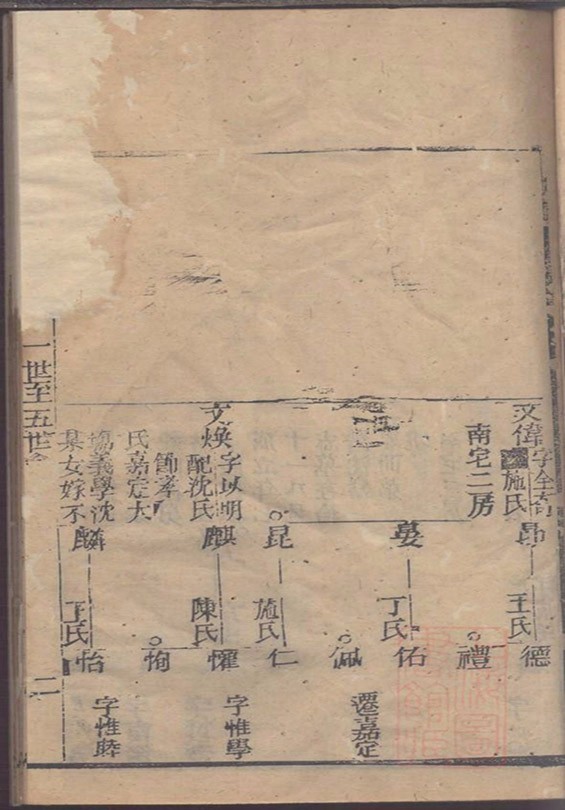 文偉字全
施氏
南宅二房
文煥字以明
配沈氏
節孝
氏嘉定大
場義學沈
某女嫁不
昂
晏
昆
麒
麟
王氏
丁氏
施氏
陳氏
王氏
德
禮
佑
佩
仁
懼
恂
怡
遷嘉定
字惟學
字惟睦
一世至五世
二